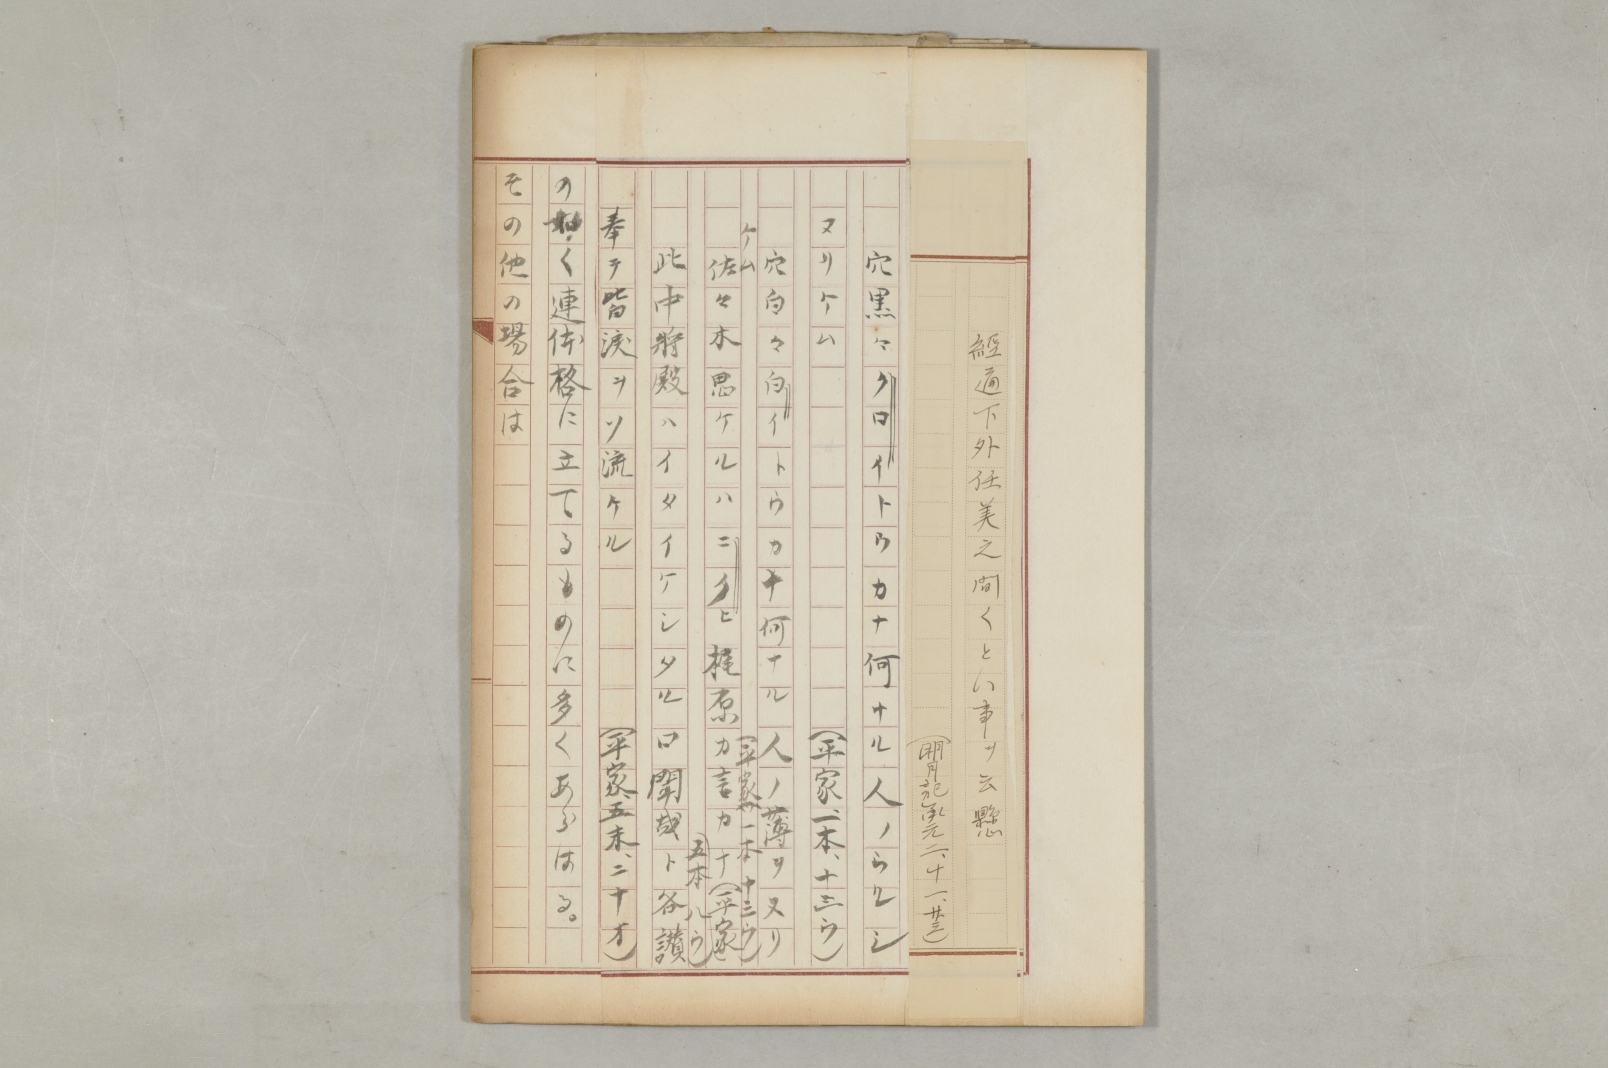 経通下外任美之間くとい事ヲ云懸
(明月記承元二、十一、廿三)
穴黒々クロイトウカナ何ナル人ノらルシ
ヌリケム
(平家、一本、十三ウ)
穴白々白イトウカナ何ナル人ノ薄ヲヌリ
ケム
(平家、一本十三ウ)
佐々木思ケルハニクヒ梶原カ言カナ(平家
五本八ウ)
此中将殿ハイタイケシタル口聞哉ト各讃
奉テ皆涙ヲソ流ケル
(平家、五末、二十オ)
の如く連体格に立てるものに多くあらはる。
その他の場合は